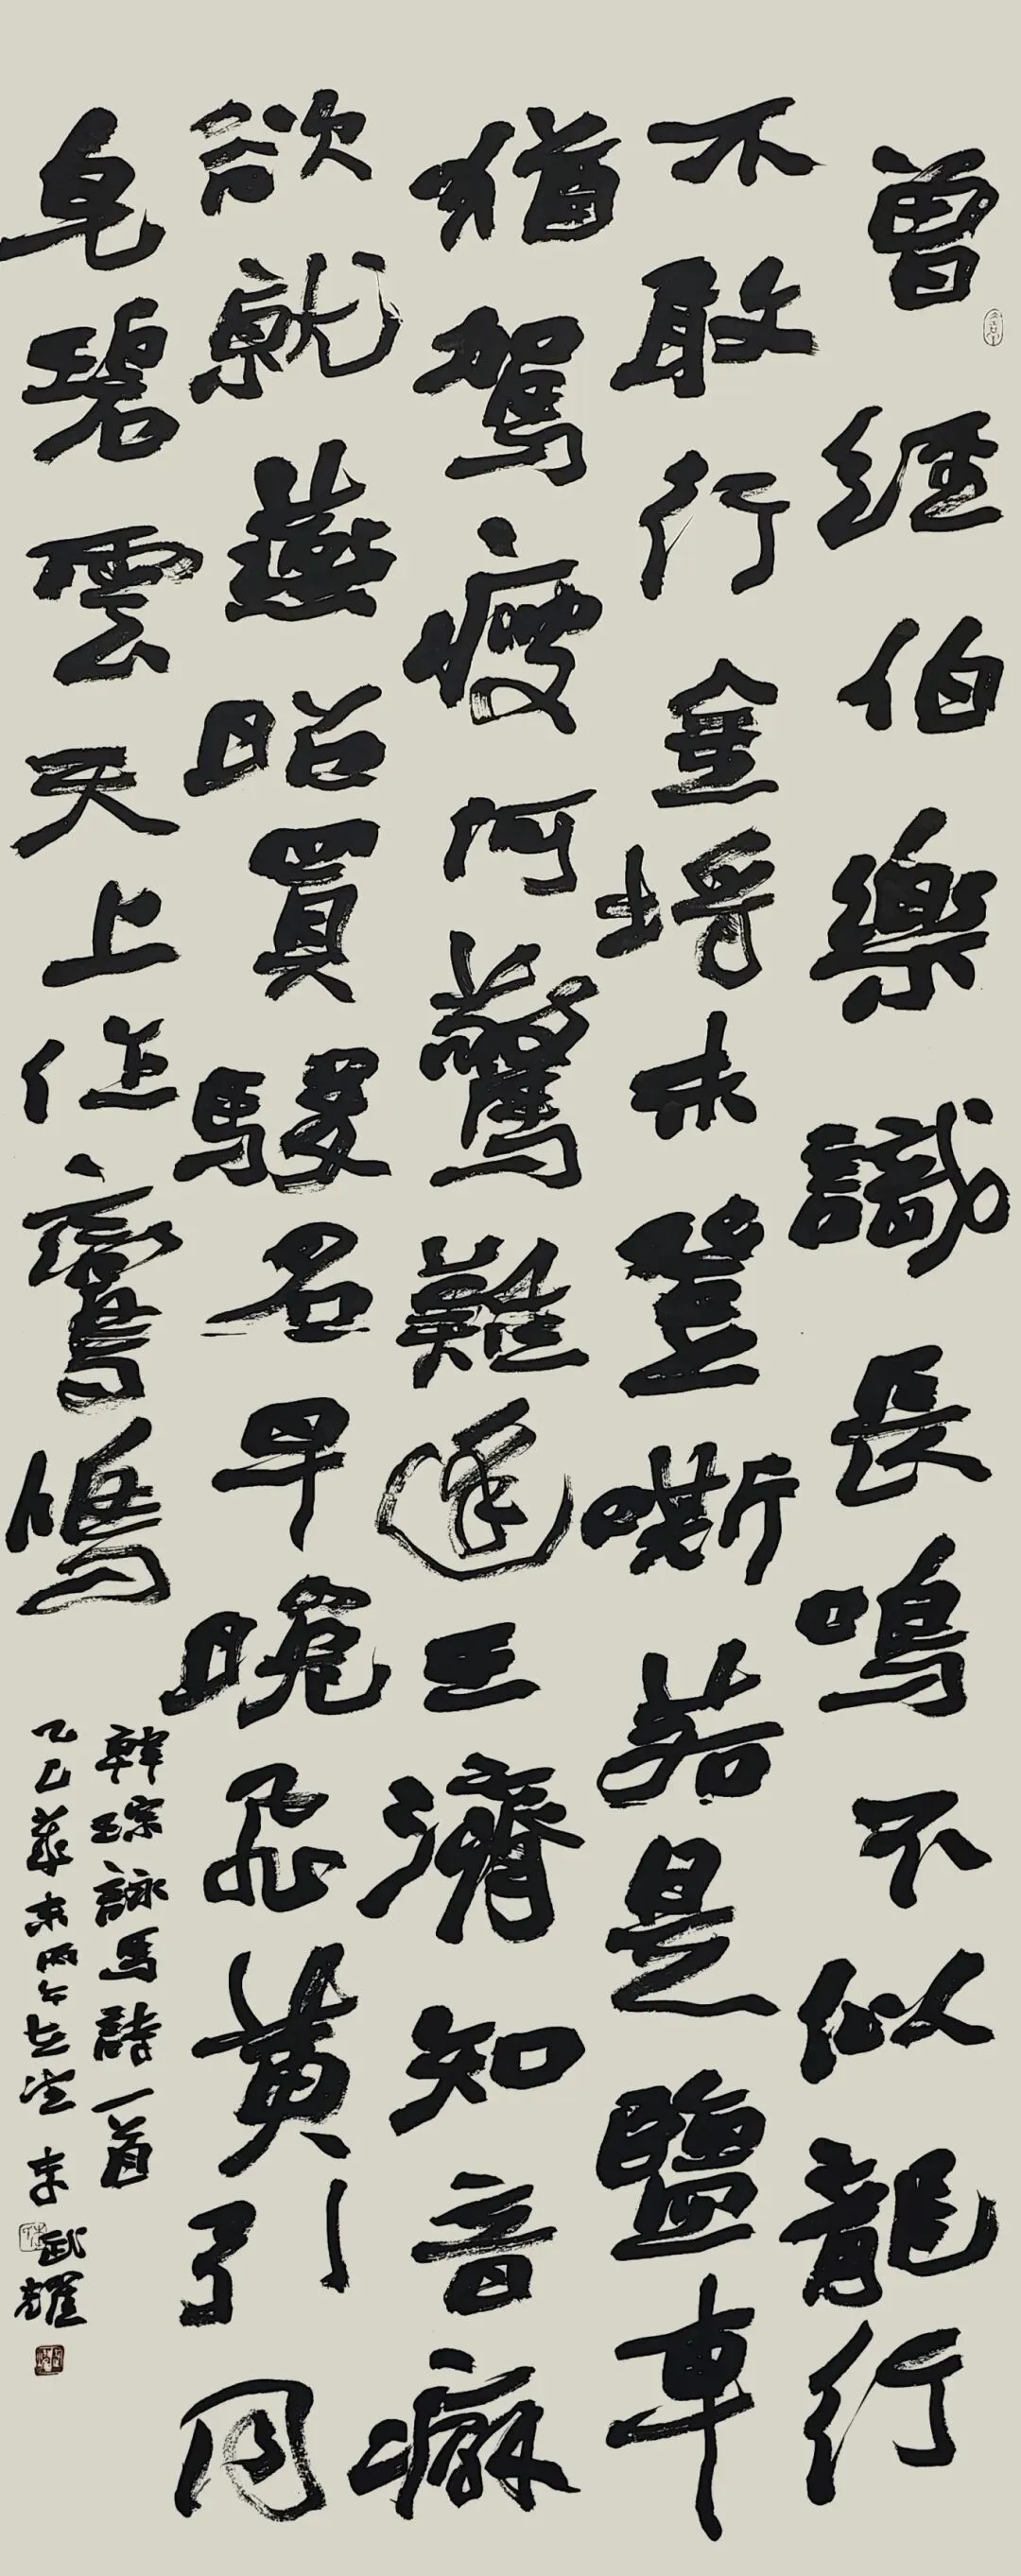 曾經伯樂識長鳴不似龍行
不敢行金埒未登嘶若是鹽車
猶駕瘦何驚難逢王濟知音癖
欲就燕昭買駿名早晚飛黃引同
皂碧雲天上作鸞鳴
韓琮詠馬詩一首
乙巳歲末丙午 李武耀